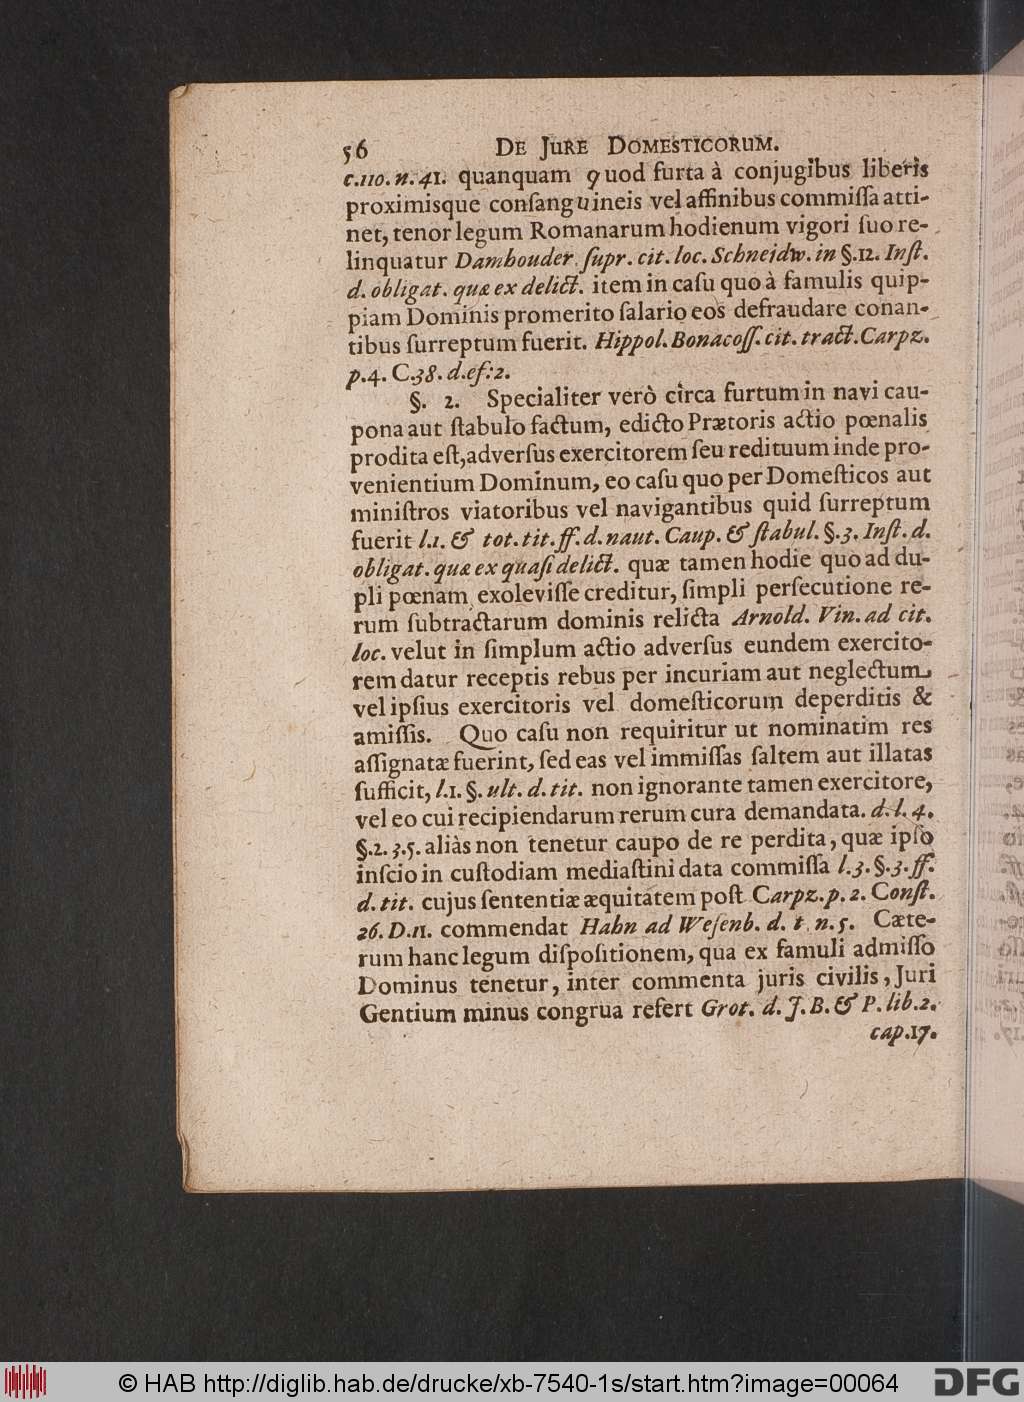 56 DE JURE DOMESTICORUM.
c.110. n. 41. quanquam quod furta à conjugibus liberis
proximisque conſanguineis vel affinibus commiſſa atti-
net, tenor legum Romanarum hodienum vigori ſuo re-
linquatur Damhouder. ſupr. cit. loc. Schneidw. in §.12. Inſt.
d. obligat. quæ ex delict. item in caſu quo à famulis quip-
piam Dominis promerito ſalario eos defraudare conan-
tibus ſurreptum fuerit. Hippol. Bonacoſſ. cit. tract. Carpz.
p.4. C.38. d.ef: 2.
§. 2. Specialiter verò circa furtum in navi cau-
pona aut ſtabulo factum, edicto Prætoris actio pœnalis
prodita eſt, adverſus exercitorem ſeu redituum inde pro-
venientium Dominum, eo caſu quo per Domeſticos aut
miniſtros viatoribus vel navigantibus quid ſurreptum
fuerit l.1. & tot. tit. ff. d. naut. Caup. & ſtabul. §.3. Inſt. d.
obligat. quæ ex quaſi delict. quæ tamen hodie quo ad du-
pli pœnam exoleviſſe creditur, ſimpli perſecutione re-
rum ſubtractarum dominis relicta Arnold. Vin. ad cit.
loc. velut in ſimplum actio adverſus eundem exercito-
rem datur receptis rebus per incuriam aut neglectum
vel ipſius exercitoris vel domeſticorum deperditis &
amiſſis. Quo caſu non requiritur ut nominatim res
aſſignatæ fuerint, ſed eas vel immiſſas ſaltem aut illatas
ſufficit, l.1. §. ult. d. tit. non ignorante tamen exercitore,
vel eo cui recipiendarum rerum cura demandata. d. l. 4.
§.2. 3.5. aliàs non tenetur caupo de re perdita, quæ ipſo
inſcio in cuſtodiam mediaſtini data commiſſa l.3. §.3. ff.
d. tit. cujus ſententiæ æquitatem poſt Carpz. p. 2. Conſt.
26. D.11. commendat Hahn ad Weſenb. d. t. n. 5. Cæte-
rum hanc legum diſpoſitionem, qua ex famuli admiſſo
Dominus tenetur, inter commenta juris civilis, Juri
Gentium minus congrua refert Grot. d. J. B. & P. lib. 2.
cap. 17.
© HAB http://diglib.hab.de/drucke/xb-7540-1s/start.htm?image=00064
DFG